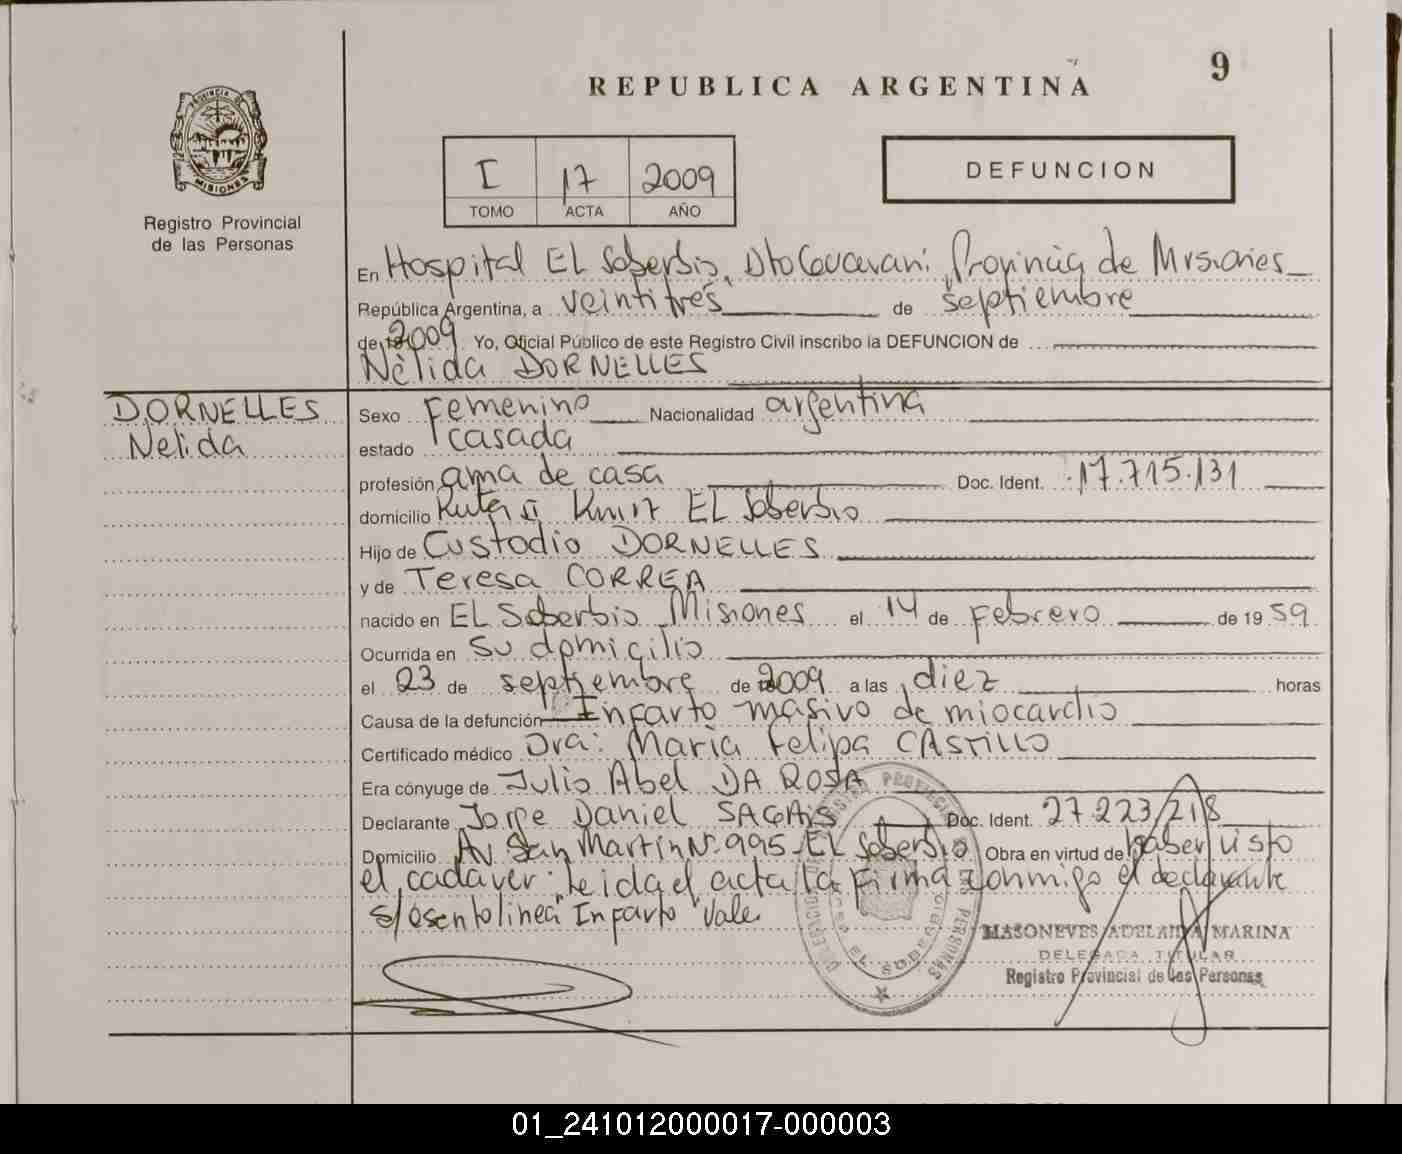 9
REPUBLICA ARGENTINA
PROVINCIA DE
MISIONES
Registro Provincial
de las Personas
I 17 2009
TOMO ACTA AÑO
DEFUNCION
En Hospital EL Soberbio, Dto Guarani, Provincia de Misiones
República Argentina, a veintitrés de septiembre
de 2009 Yo, Oficial Público de este Registro Civil inscribo la DEFUNCION de
Nélida DORNELLES
DORNELLES
Nelida
Sexo Femenino Nacionalidad argentina
estado casada
profesión ama de casa Doc. Ident. 17.715.131
domicilio Ruta 2 Km 17 EL Soberbio
Hijo de Custodio DORNELLES
y de Teresa CORREA
nacido en EL Soberbio Misiones el 14 de febrero de 1959
Ocurrida en su domicilio
el 23 de septiembre de 2009 a las diez horas
Causa de la defunción Infarto masivo de miocardio
Certificado médico Dra: María Felipa CASTILLO
Era cónyuge de Julio Abel DA ROSA
Declarante Jorge Daniel SAGAIS Doc. Ident. 27.223.218
Domicilio Av San Martin Nº 995 EL Soberbio Obra en virtud de haber visto
el cadaver. Leida el acta la firma conmigo el declarante
s/o sento linea "Infarto" Vale
MASONEVES ADELAIDA MARINA
DELEGADA TITULAR
Registro Provincial de las Personas
01_241012000017-000003